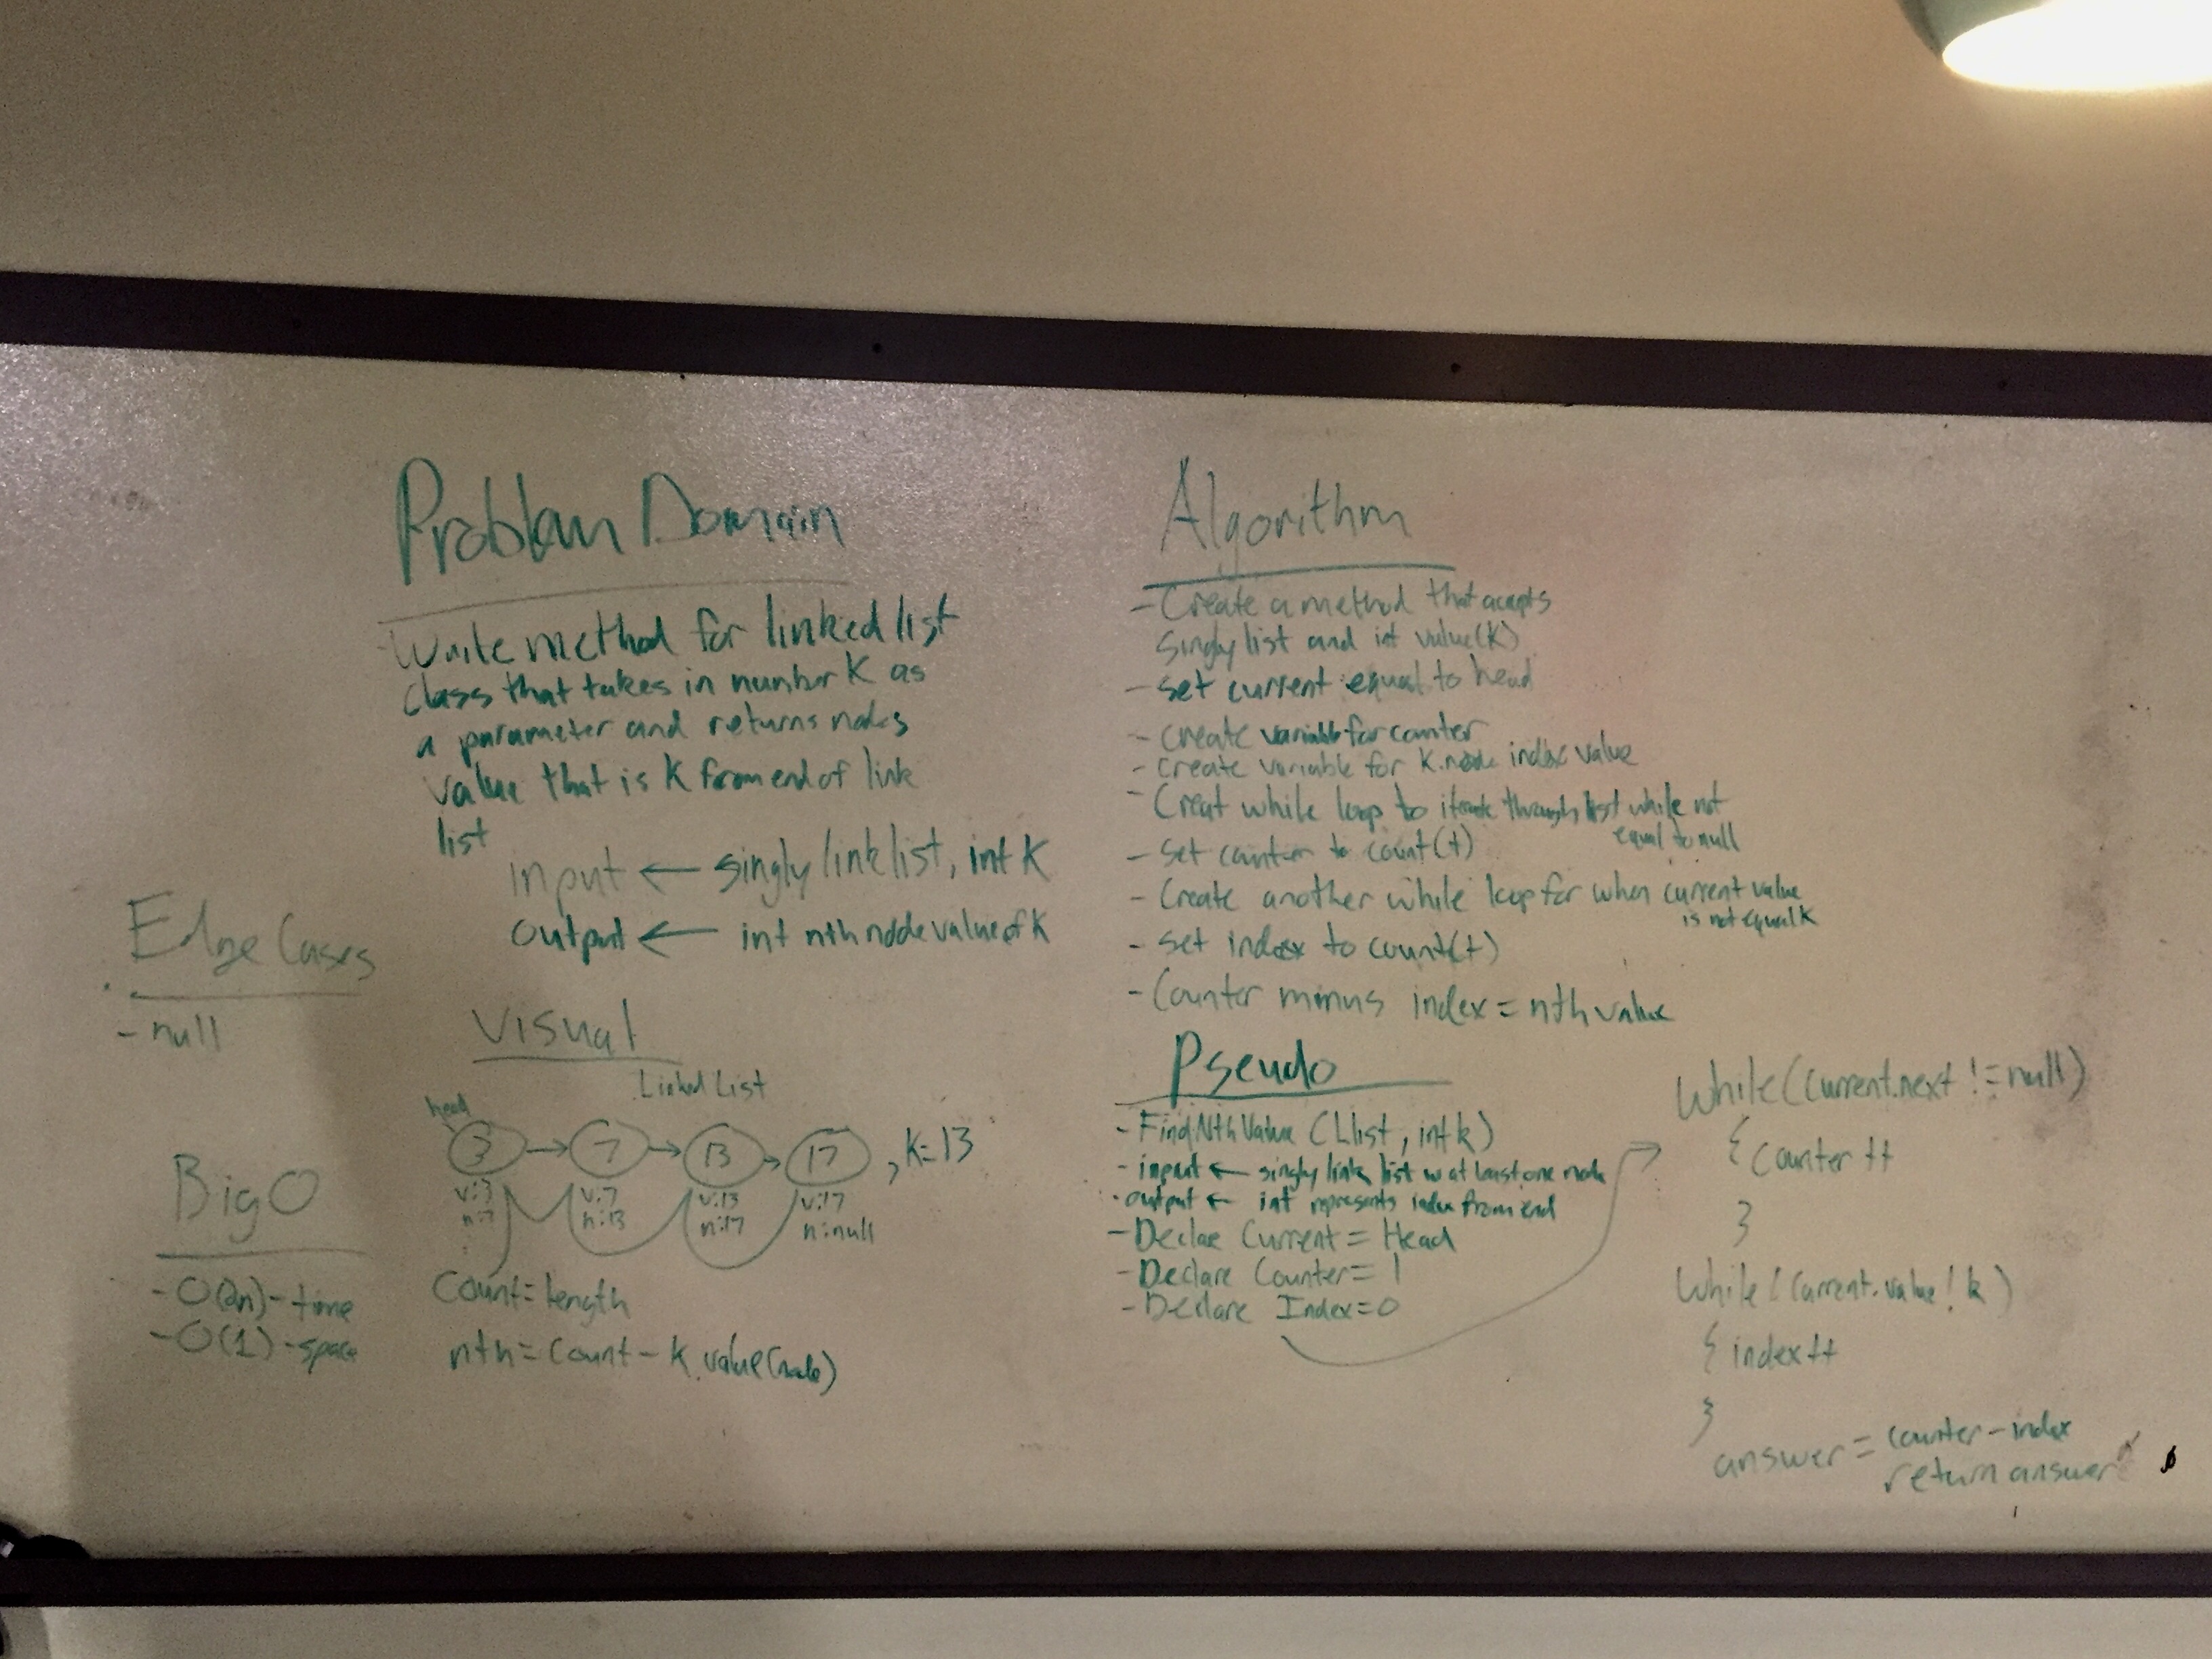 Problem Domain
Write method for linked list
class that takes in number K as
a parameter and returns nodes
value that is K from end of link
list
input ← singly link list, int K
output ← int nth node value of K
Edge Cases
- null
Big O
- O(2n) - time
- O(1) - space
Visual
Linked List
head
3 → 7 → 13 → 17 , K=13
v:3 v:7 v:13 v:17
n:7 n:13 n:17 n:null
Count = length
nth = Count - K.value(node)
Algorithm
- Create a method that accepts
singly list and int value(K)
- set current equal to head
- create variable for counter
- create variable for K.node index value
- Creat while loop to iterate through list while not
equal to null
- set counter to count(+)
- Create another while loop for when current value
is not equal K
- set index to count(+)
- Counter minus index = nth value
Pseudo
- FindNthValue (Llist, int k)
- input ← singly link list w at least one node
- output ← int represents index from end
- Declae Current = Head
- Declare Counter = 1
- Declare Index = 0
While(current.next != null)
{ counter ++
}
While(current.value ! k)
{ index ++
}
answer = counter - index
return answer